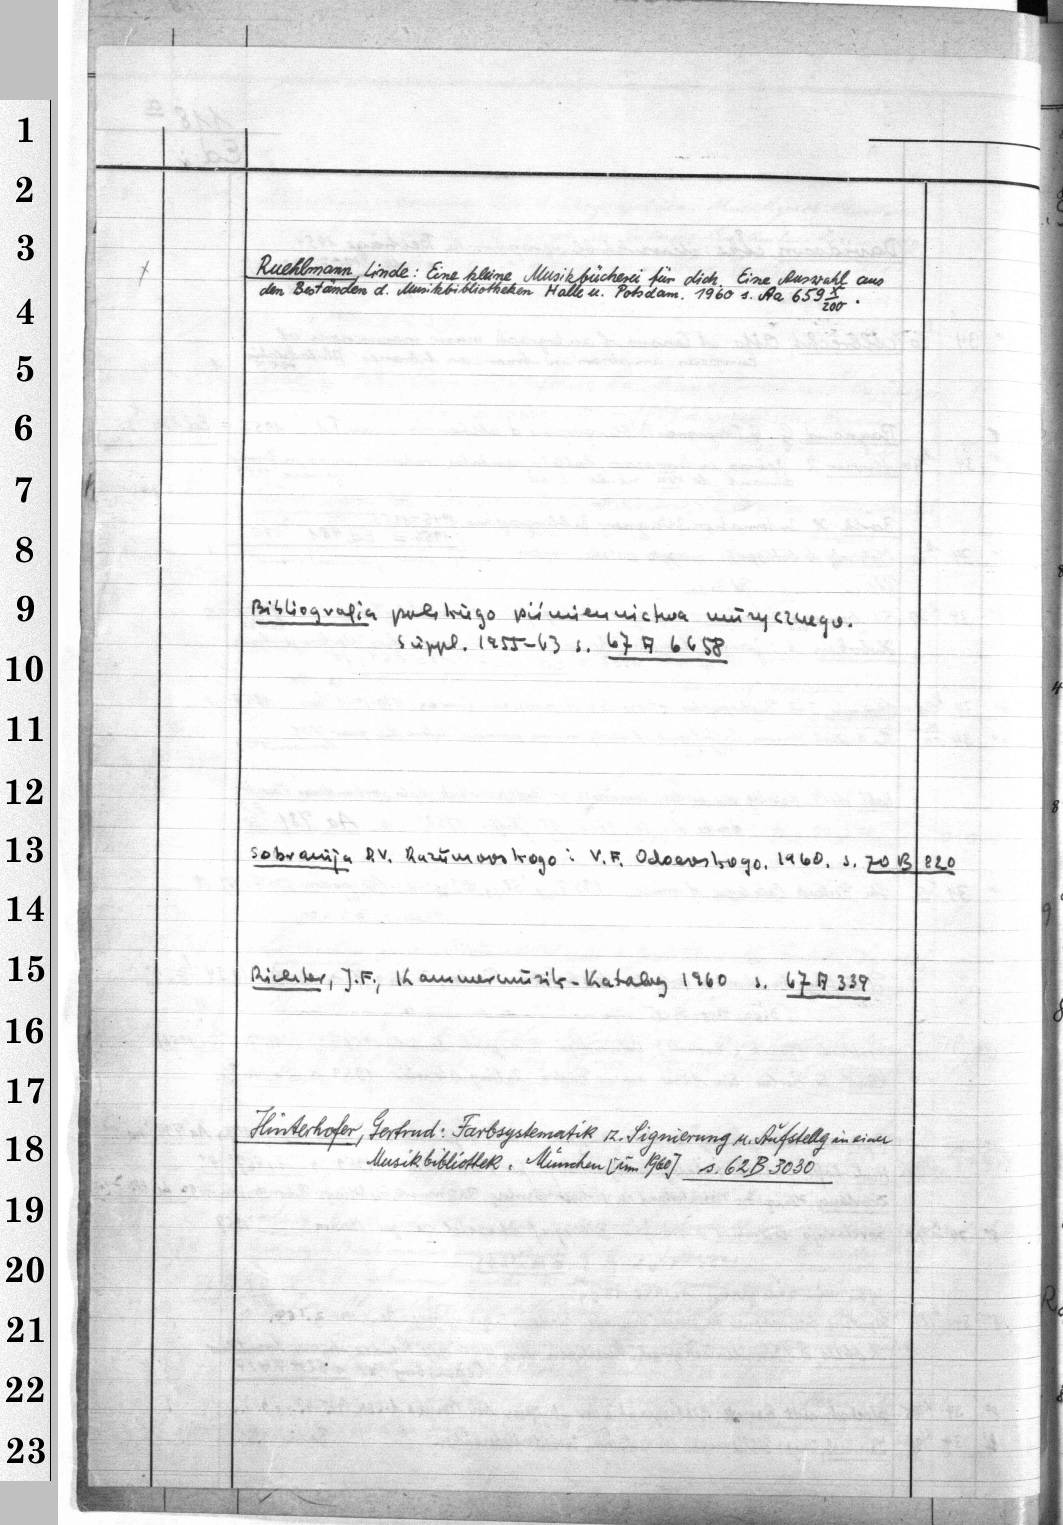 1
2
3
Ruehlmann, Linde: Eine kleine Musikbücherei für dich. Eine Auswahl aus
den Beständen d. Musikbibliotheken Halle u. Potsdam. 1960 s. Aa 659 X/200.
4
5
6
7
8
9
Bibliografia polskiego piśmiennictwa muzycznego.
Suppl. 1955-63 s. 67 A 6658
10
11
12
13
Sobranija D.V. Razumovskogo i V.F. Odoevskogo. 1960. s. 70 B 220
14
15
Richter, J.F., Kammermusik-Katalog 1960 s. 67 A 339
16
17
Hinterhofer, Gertrud: Farbsystematik z. Signierung u. Aufstellg in einer
18
Musikbibliothek. München [um 1960] s. 62 B 3030
19
20
21
22
23